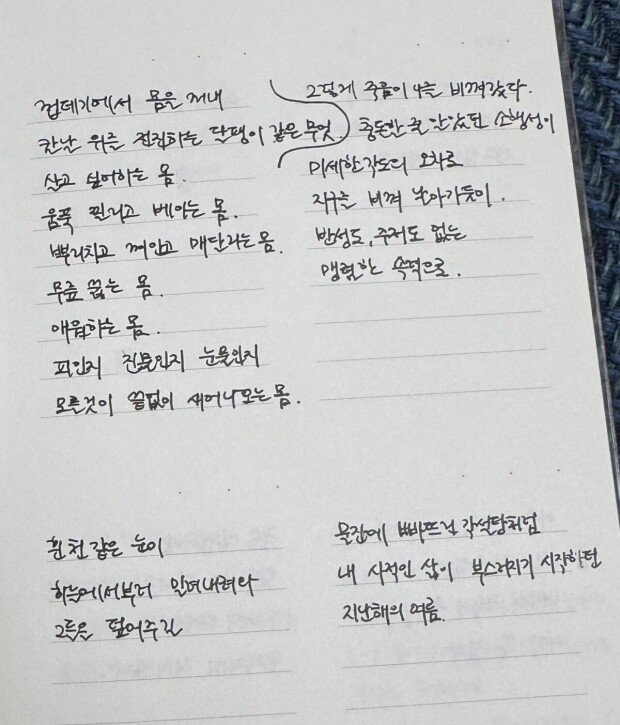 껍데기에서 몸을 꺼내
칼날 위를 전진하는 달팽이 같은 무엇
살고 싶어하는 몸.
움푹 찔리고 베이는 몸.
뿌리치고 껴안고 매달리는 몸.
무릎 꿇는 몸.
애원하는 몸.
피인지 진물인지 눈물인지
모를것이 끝없이 새어나오는 몸.
그렇게 죽음이 나를 비껴갔다.
충돌할 줄 알았던 소행성이
미세한 각도의 오차로
지구를 비껴 날아가듯이.
반성도, 주저도 없는
맹렬한 속력으로.
흰 천 같은 눈이
하늘에서부터 밀려내려와
그들을 덮어주길
물잔에 빠뜨린 각설탕처럼
내 사적인 삶이 부스러지기 시작하던
지난해의 여름.